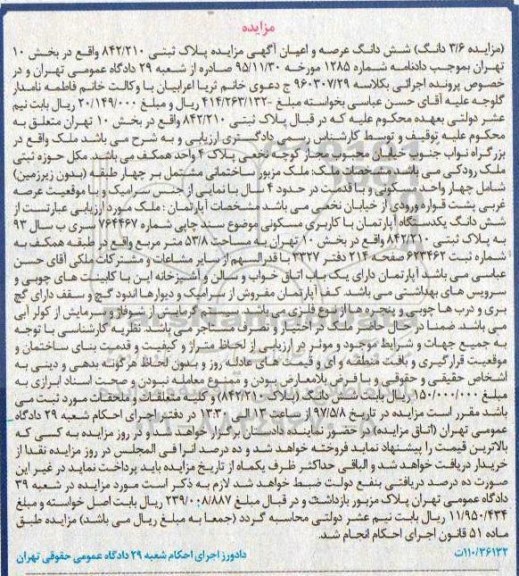 مزایده
(مزایده ۳/۶ دانگ) شش دانگ عرصه و اعیان آگهی مزایده پلاک ثبتی ۸۴۲/۲۱۰ واقع در بخش ۱۰
تهران بموجب دادنامه شماره ۱۲۸۵ مورخه ۹۵/۱۱/۳۰ صادره از شعبه ۲۹ دادگاه عمومی تهران و در
خصوص پرونده اجرائی بکلاسه ۹۶۰۳۰۷/۲۹ ج دعوی خانم ثریا اعرابیان با وکالت خانم فاطمه نامدار
گلوجه علیه آقای حسن عباسی بخواسته مبلغ ۴۱۴/۲۶۳/۱۳۲ ریال و مبلغ ۲۰/۱۴۹/۰۰۰ ریال بابت نیم
عشر دولتی بعهده محکوم علیه که در قبال پلاک ثبتی ۸۴۲/۲۱۰ واقع در بخش ۱۰ تهران متعلق به
محکوم علیه توقیف و توسط کارشناس رسمی دادگستری ارزیابی و به شرح می باشد ملک واقع در
بزرگراه نواب جنوب خیابان محبوب مجاز کوچه نجعی پلاک ۴ واحد همکف می باشد. مکل حوزه ثبتی
ملک رودکی می باشد و مشخصات ملک: ملک مزبور ساختمانی مشتمل بر چهار طبقه (بدون زیرزمین)
شامل چهار واحد مسکونی و با قدمت در حدود ۴ سال با نمایی از جنس سرامیک و با موقعیت عرصه
غربی پشت قواره ورودی از خیابان نخعی می باشد مشخصات آپارتمان : ملک مورد ارزیابی عبارتست از
شش دانگ یکدستگاه آپارتمان با کاربری مسکونی موضوع سند چاپی شماره ۷۶۴۴۶۷ سری ب سال ۹۳
به پلاک ثبتی ۸۴۲/۲۱۰ واقع در بخش ۱۰ تهران به مساحت ۵۳/۸ متر مربع واقع در طبقه همکف به
شماره ثبت ۶۲۳۴۶۲ صفحه ۲۱۴ دفتر ۲۳۲۷ با قدرالسهم از سایر مشاعات و مشترکات ملکی آقای حسن
عباسی می باشد آپارتمان دارای یک باب اتاق خواب و سالن و آشپزخانه اپن با کابینت های چوبی و
سرویس های بهداشتی می باشد. کف آپارتمان مفروش از سرامیک و دیوارها اندود گچ و سقف دارای گچ
بری و درب ها چوبی و پنجره ها از نوع فلزی می باشد. سیستم گرمایش از شوفاژ و سرمایش از کولر آبی
می باشد. ضمنا در حال حاضر ملک در اختیار و تصرف مستاجر می باشد. نظریه کارشناسی با توجه
به جمیع جهات و شرایط موجود و موثر در ارزیابی از لحاظ متراژ و کیفیت و قدمت بنای ساختمان و
موقعیت قرارگیری و بافت منطقه و ای و قیمت های عادله روز و بدون لحاظ هرگونه بدهی و دینی به
اشخاص حقیقی و حقوقی و با فرض بلامعارض بودن و ممنوع معامله نبودن و صحت اسناد ابرازی به
مبلغ ۱۵۰/۰۰۰/۰۰۰ ریال بابت شش دانگ (پلاک ۸۴۲/۲۱۰) و کلیه متعلقات و ملحقات مورد ثبت می
باشد مقرر است مزایده در تاریخ ۹۷/۵/۸ از ساعت ۱۳ الی ۱۳:۳۰ در دفتر اجرای احکام شعبه ۲۹ دادگاه
عمومی تهران (اتاق مزایده) و حضور نماینده دادستان برگزار خواهد شد و در روز مزایده به کسی که
بالاترین قیمت را پیشنهاد نماید فروخته خواهد شد و ده درصد آنرا فی المجلس در روز مزایده نقدا از
خریدار دریافت خواهد شد و الباقی حداکثر ظرف یکماه از تاریخ مزایده باید پرداخت نماید در غیر این
صورت ده درصد دریافتی بنفع دولت ضبط خواهد شد لازم به ذکر است مورد مزایده در شعبه ۳۹
دادگاه عمومی تهران پلاک مزبور بازداشت و در قبال مبلغ ۲۳۹/۰۰۸/۸۸۷ ریال بابت اصل خواسته و مبلغ
۱۱/۹۵۰/۴۳۴ ریال بابت نیم عشر دولتی محاسبه گردد (جمعا به مبلغ ریال می باشد) مزایده طبق
ماده ۵۱ قانون اجرای احکام انجام شد.
۱۱۰/۳۶۱۳۲ت دادورز اجرای احکام شعبه ۲۹ دادگاه عمومی حقوقی تهران